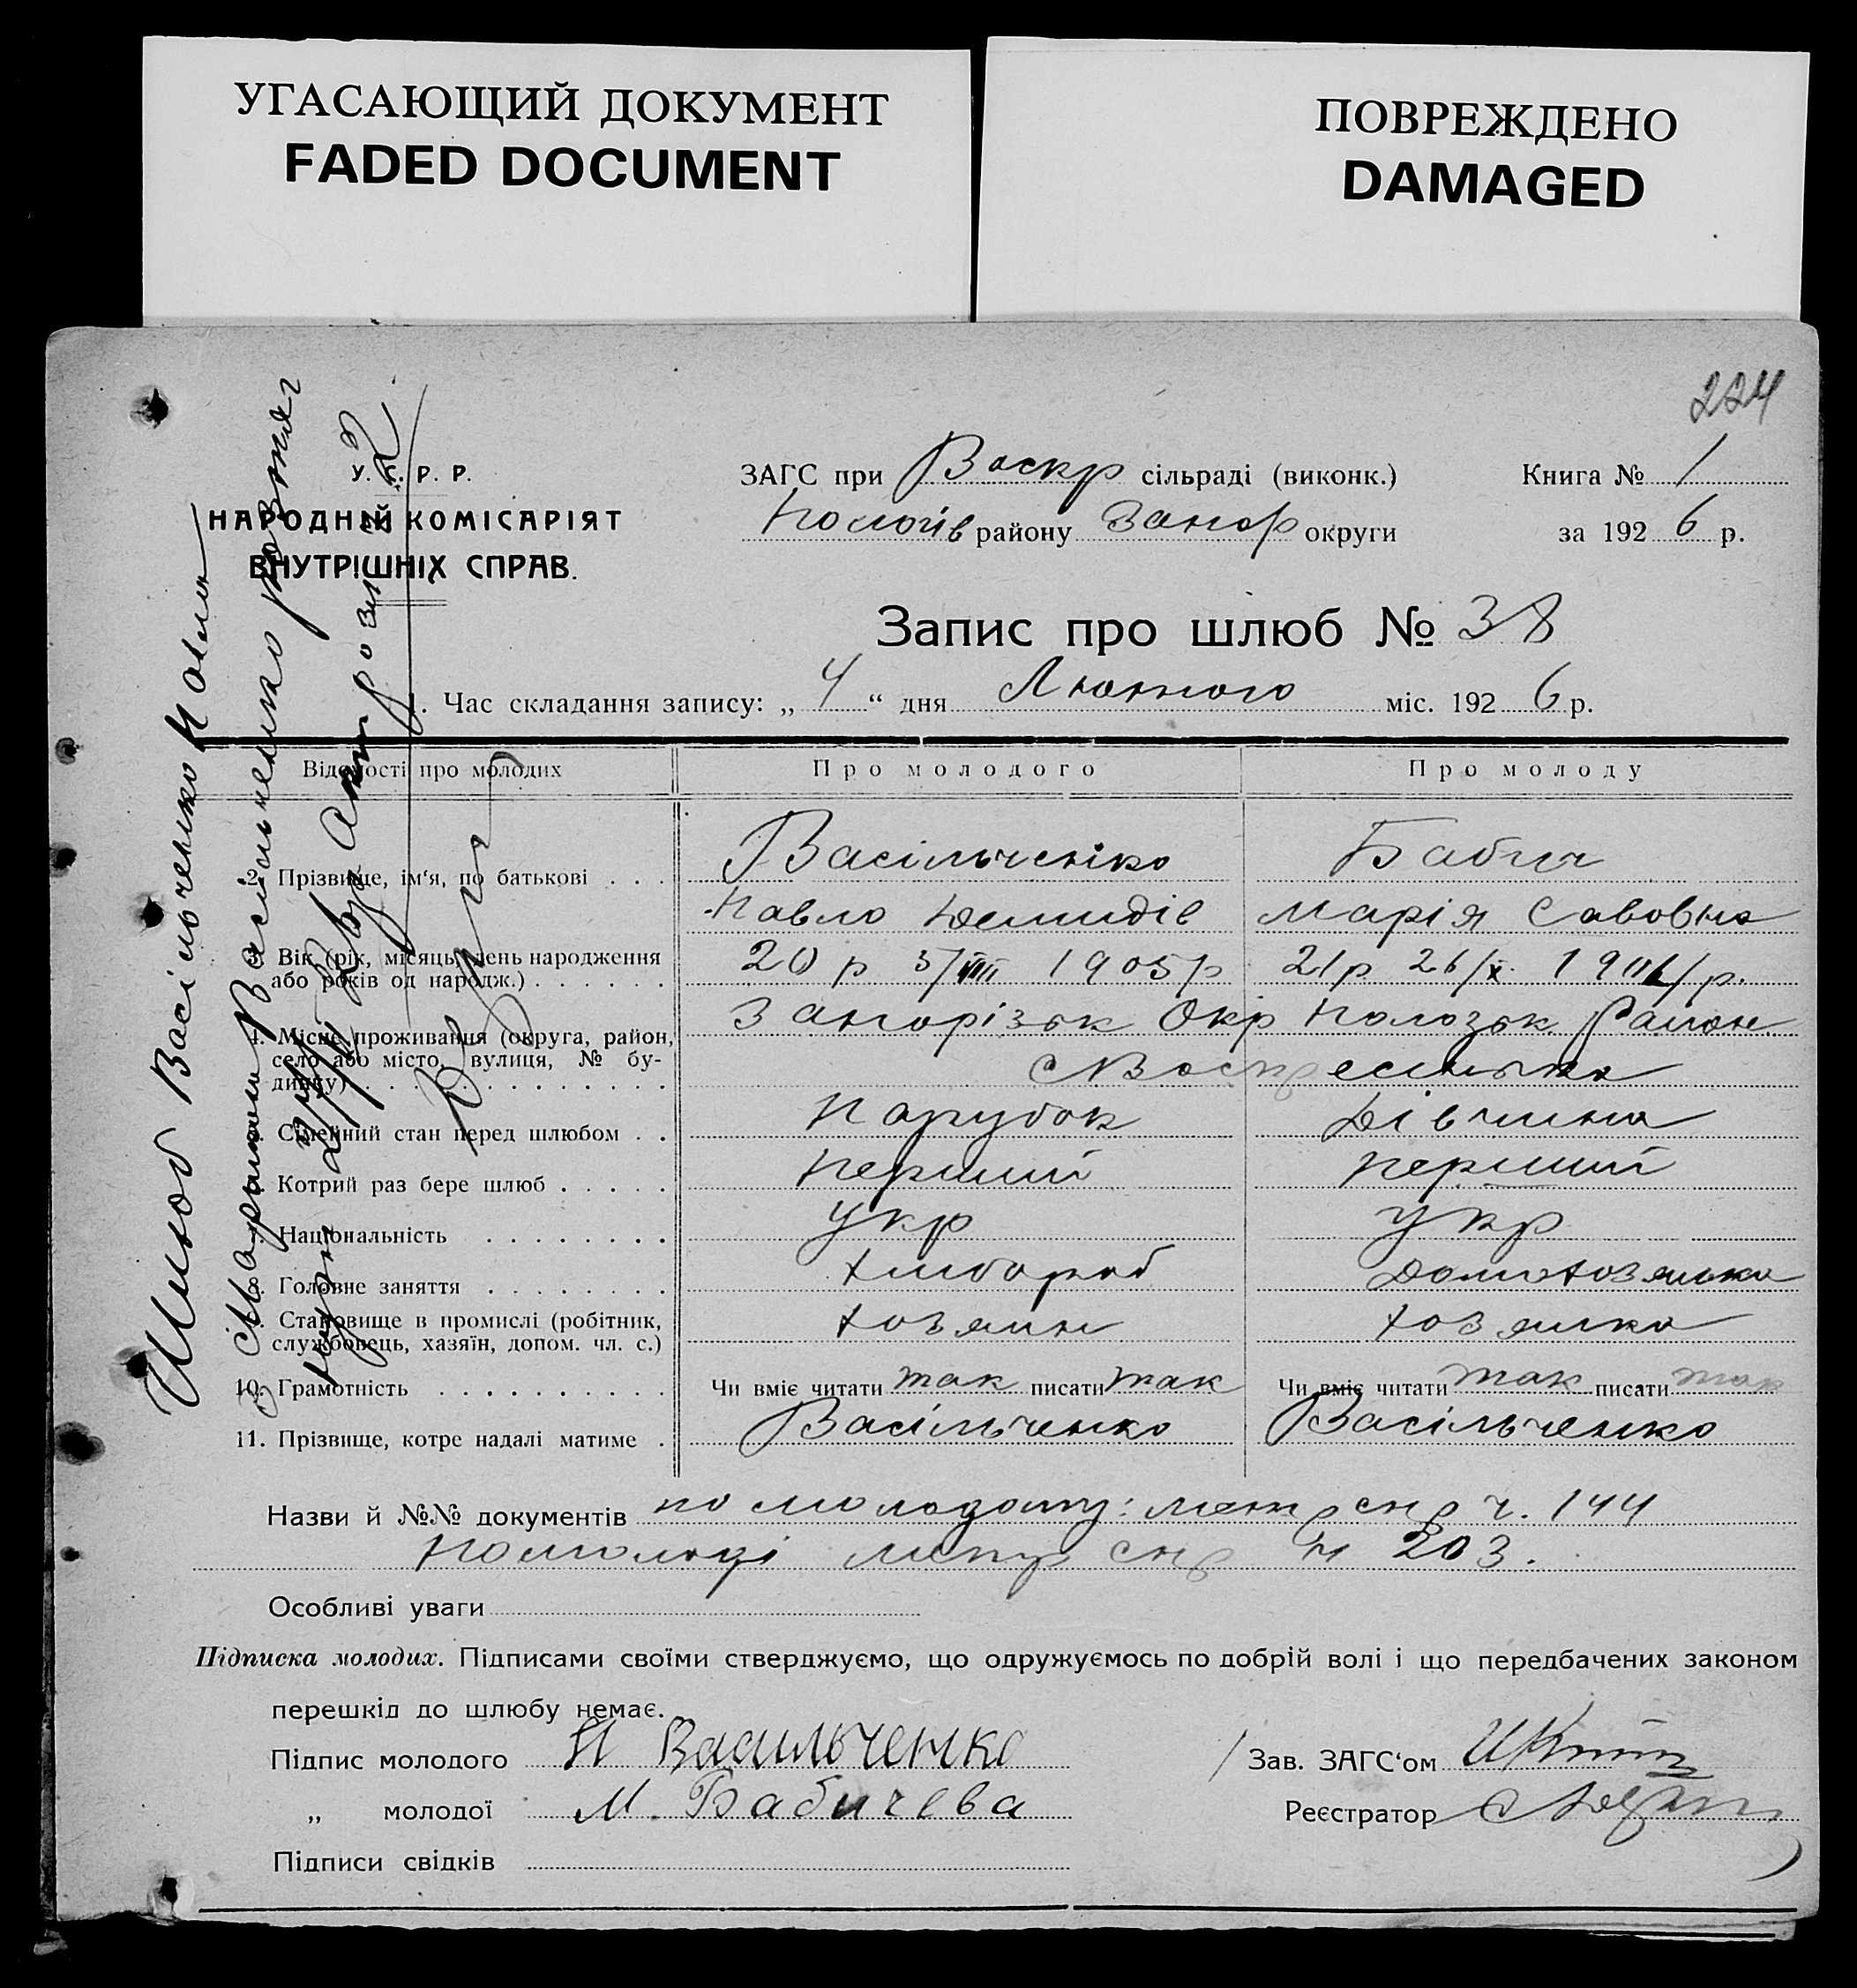 УГАСАЮЩИЙ ДОКУМЕНТ
FADED DOCUMENT
ПОВРЕЖДЕНО
DAMAGED
224
У. С. Р. Р.
НАРОДНІЙ КОМІСАРІЯТ
ВНУТРІШНІХ СПРАВ.
ЗАГС при Воскр сільраді (виконк.) Книга № 1
району Запор округи за 1926 р.
Запис про шлюб № 38
1. Час складання запису: „ 4 “ дня Лютого міс. 1926 р.
Відомості про молодих Про молодого Про молоду
2. Прізвище, ім‘я, по батькові . . . Васільченко Бабич
Павло Демидів Марія Савовна
3. Вік (рік, місяць, день народження 20 р 5/VIII 1905 р 21 р. 26/X. р.
або років од народж.) . . . . . .
4. Місце проживання (округа, район, Запорізьк Окр Пологзьк Район
село або місто, вулиця, № бу-
динку) . . . . . . . . . . . . . . с Воскресенька
Сімейний стан перед шлюбом . . Парубок Дівчина
Котрий раз бере шлюб . . . . . Перший перший
Національність . . . . . . . . укр укр
8. Головне заняття . . . . . . . . хлібороб
Становище в промислі (робітник, хозяин хозяйка
службовець, хазяїн, допом. чл. с.)
10. Грамотність . . . . . . . . . . Чи вміє читати так писати так Чи вміє читати так писати так
11. Прізвище, котре надалі матиме . Васільченко Васільченко
Назви й №№ документів по молодому: метр ч. 144
203.
Особливі уваги
Підписка молодих. Підписами своїми стверджуємо, що одружуємось по добрій волі і що передбачених законом
перешкід до шлюбу немає.
Підпис молодого П Васильченко Зав. ЗАГС‘ом
„ молодої М. Бабичева Реєстратор
Підписи свідків
Шлюб Васільченко Павла
Марією Васільченко розтяг